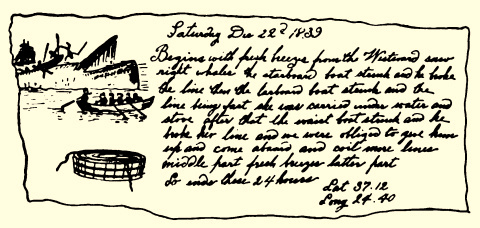 Saturday Dec 22d 1839
Begins with fresh breeze from the Westward saw
right whales the starboard boat struck and he broke
the line then the larboard boat struck and the
line being fast she was carried under water and
stove after that the waist boat struck and he
broke her line and we were obliged to give him
up and come aboard and coil more lines
middle part fresh breezes latter part
So ends these 24 hours
Lat 37.12
Long 24.40